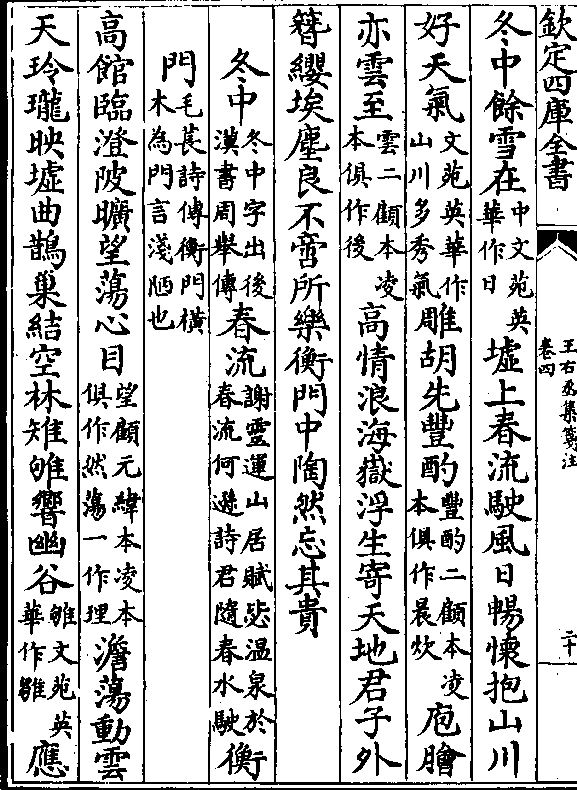 欽定四庫全書
王右丞集箋注
卷四
二十
冬中餘雪在中文苑英華作日墟上春流駛風日暢懷抱山川
好天氣文苑英華作山川多秀氣雕胡先豐酌豐酌二顧本凌本俱作晨炊庖膾
亦雲至雲二顧本凌本俱作後高情浪海嶽浮生寄天地君子外
簪纓埃塵良不啻所樂衡門中陶然忘其貴
冬中冬中字出後漢書周舉傳春流謝靈運山居賦毖温泉於春流何遜詩君隨春水駛衡
門毛萇詩傳衡門橫木為門言淺陋也
高館臨澄陂曠望蕩心目望顧元緯本凌本俱作然蕩一作理澹蕩動雲
天玲瓏映墟曲鵲巢結空林雉雊響幽谷雊文苑英華作雛應